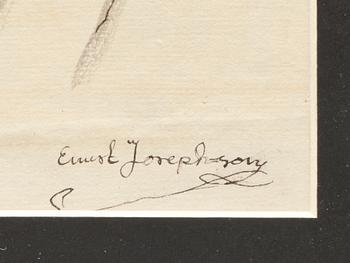 Ernst Joseph=son